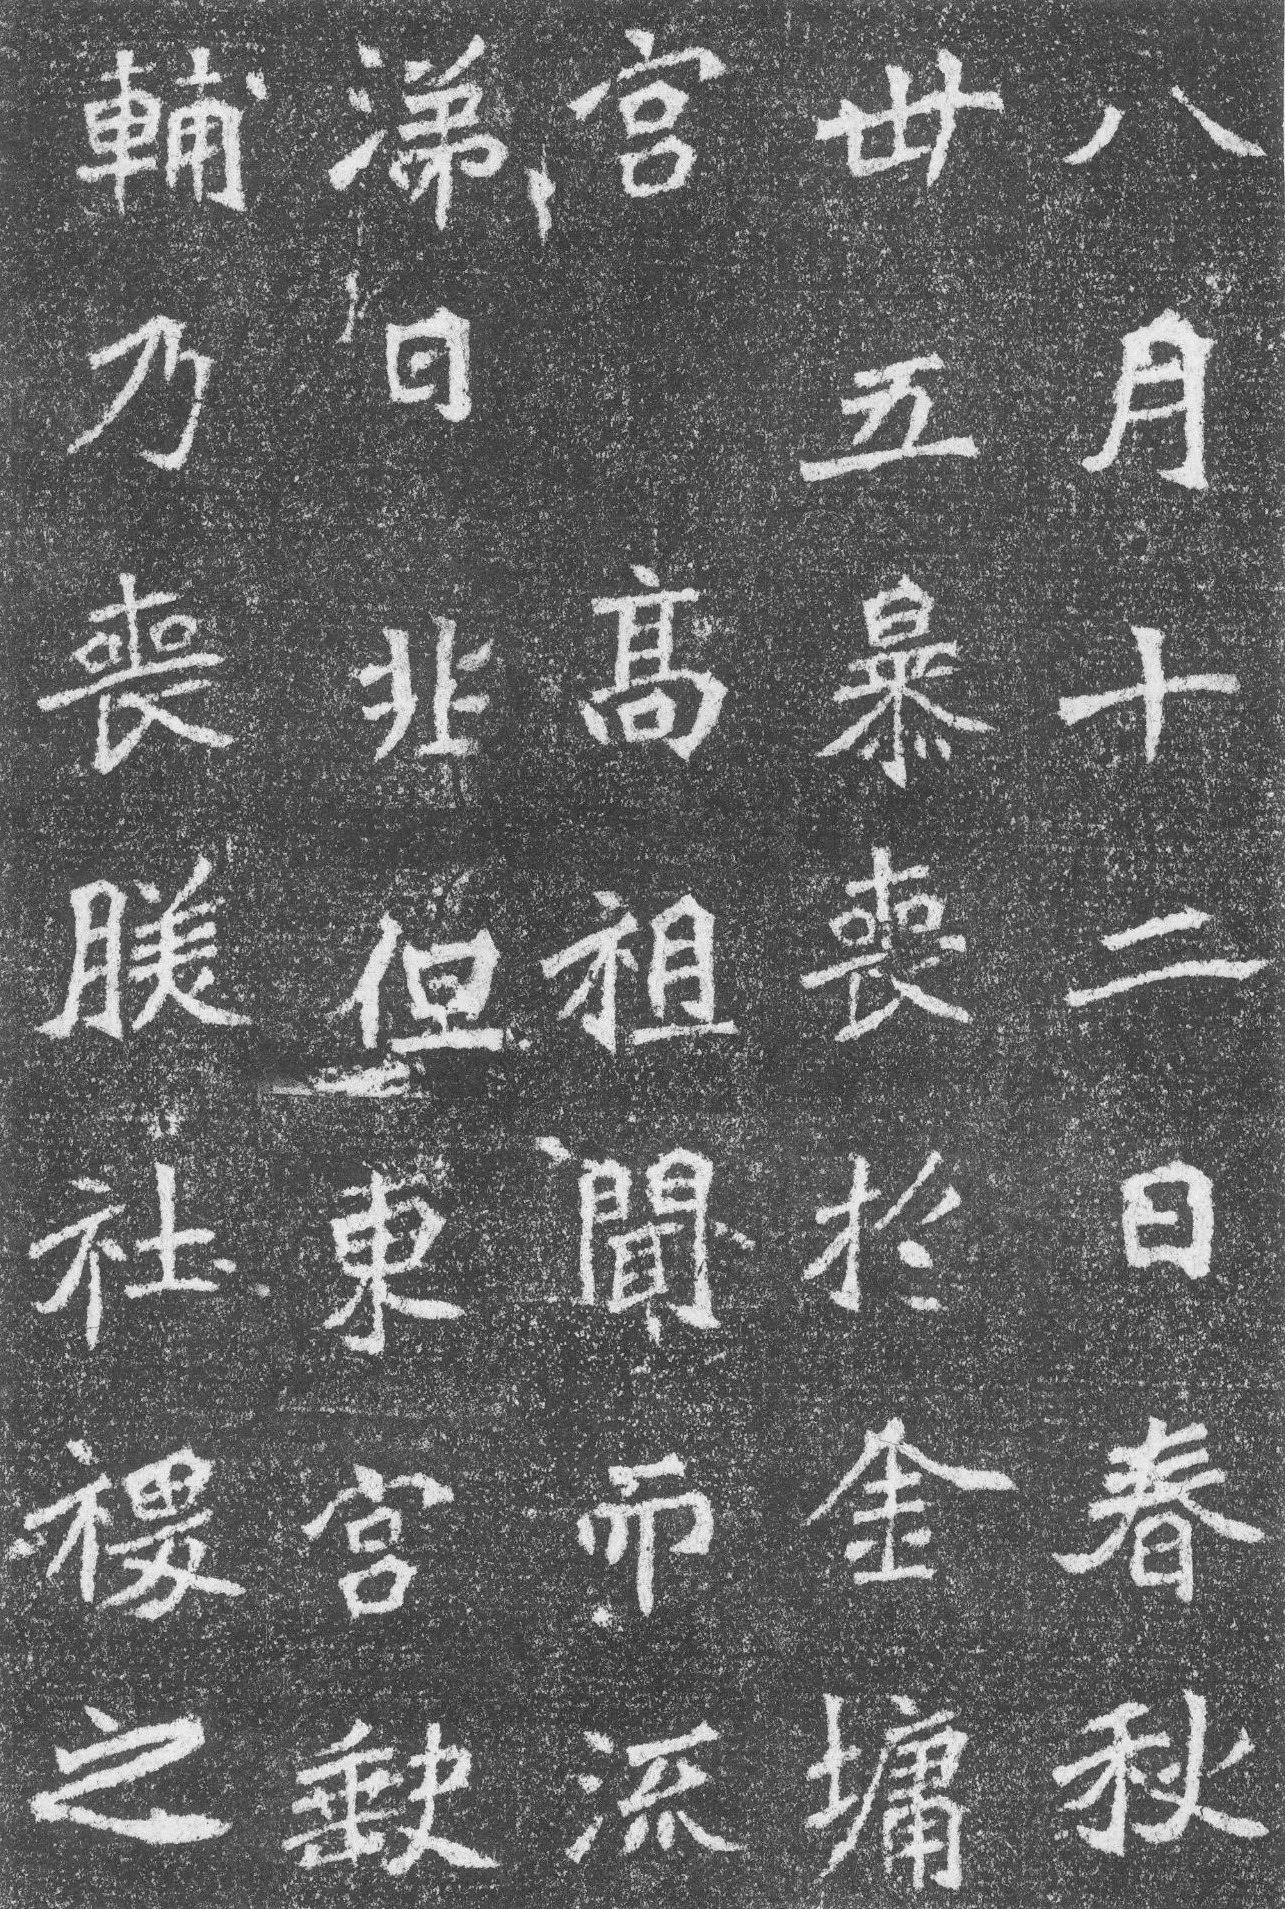 八月十二日春秋
卅五㬥喪於金墉
宮高祖聞而流
涕曰非但東宮𡙇
輔乃喪朕社稷之